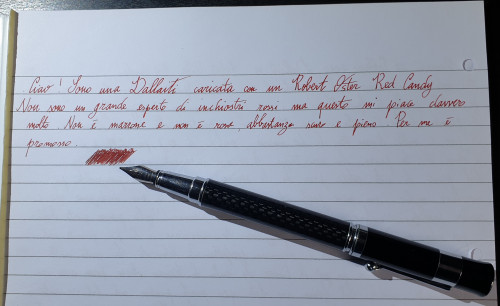 Ciao! Sono una Dallaiti caricata con un Robert Oster Red Candy
Non sono un grande esperto di inchiostri rossi ma questo mi piace davvero
molto Non è marrone e non è rosa abbastanza scuro e pieno Per me è
promosso